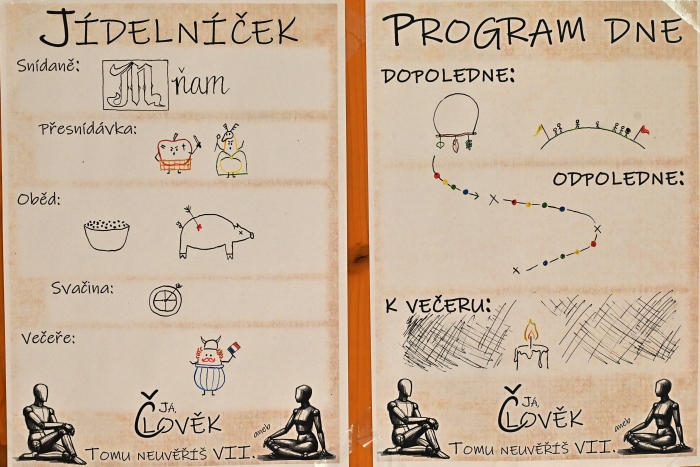 JÍDELNÍČEK
Snídaně:
Mňam
Přesnídávka:
Oběd:
Svačina:
Večeře:
Já,
Člověk
aneb
Tomu neuvěříš VII.
PROGRAM DNE
DOPOLEDNE:
ODPOLEDNE:
K VEČERU:
Já,
Člověk
aneb
Tomu neuvěříš VII.